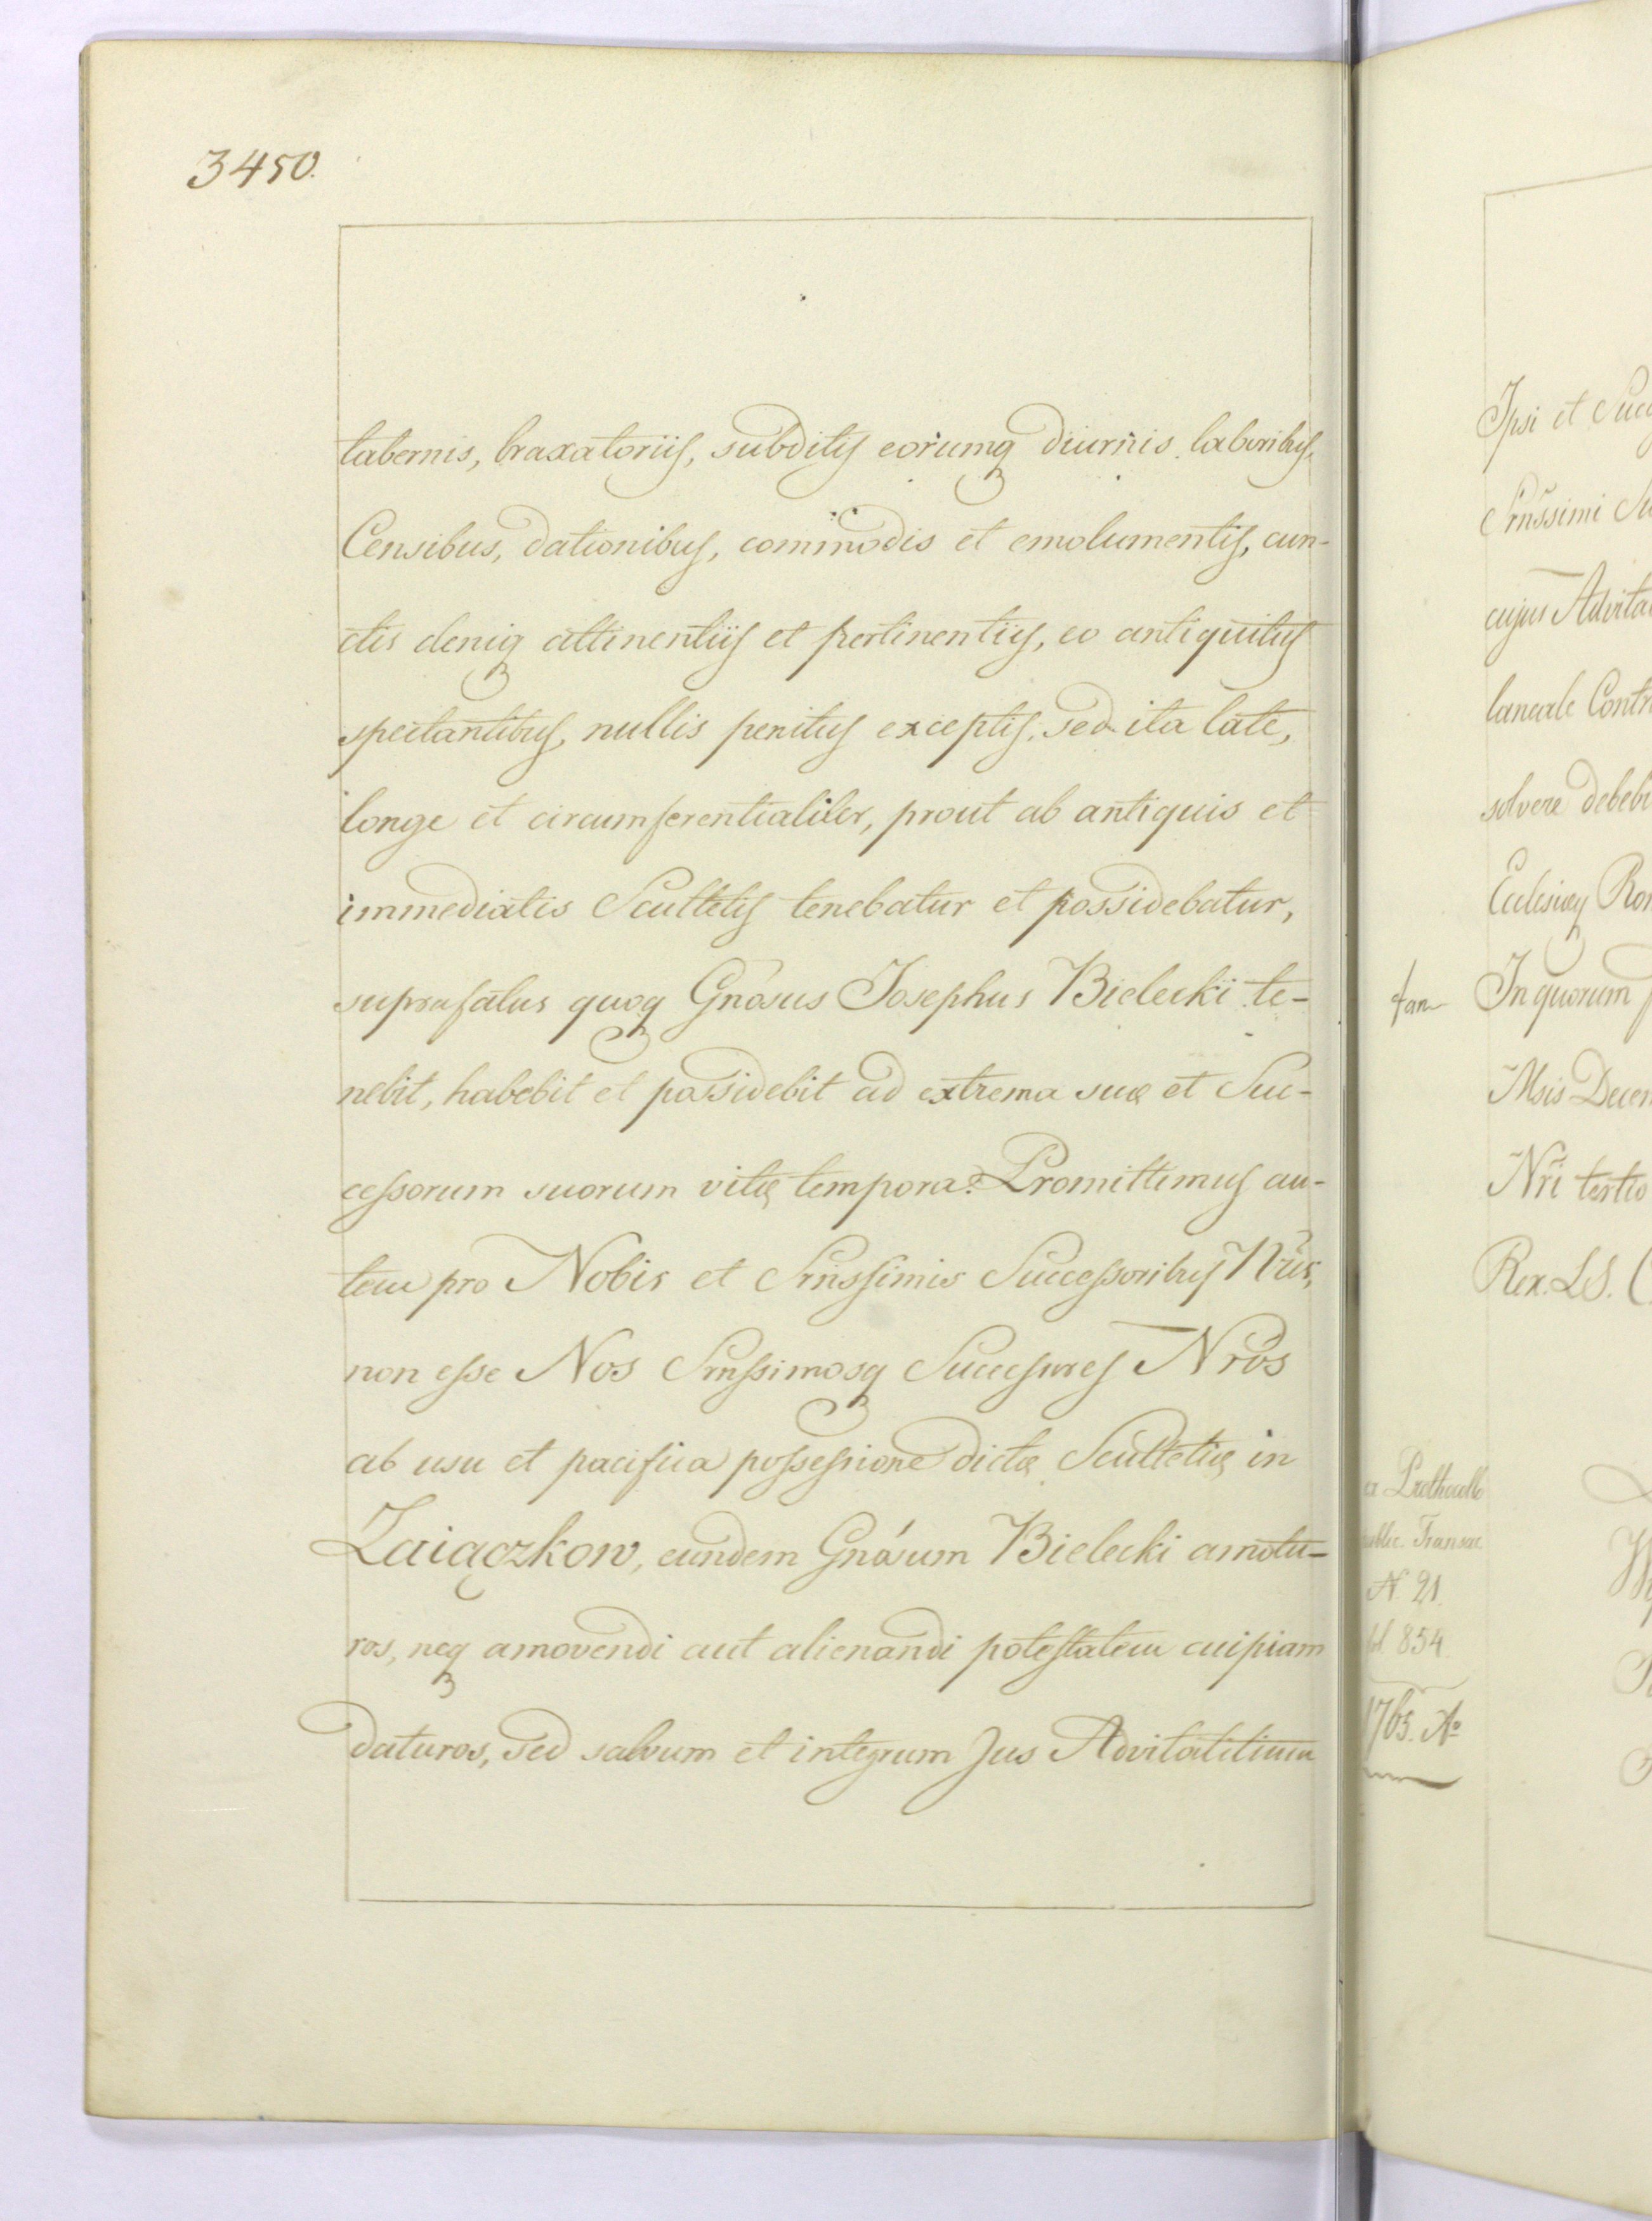 3450.
tabernis, braxatoriis, subditis eorumq diurnis laboribus,
Censibus, dationibus, commodis et emolumentis, cun-
ctis deniq attinentiis et pertinentiis, eo antiquitus
spectantibus, nullis penitus exceptis, sed ita late,
longe et circumferentialiter, prout ab antiquis et
immediatis Scultetis tenebatur et possidebatur,
suprafatus quoq Gnosus Josephus Bielecki te-
nebit, habebit et possidebit ad extrema suæ et Suc-
cessorum suorum vitæ tempora. Promittimus au-
tem pro Nobis et Srnssimis Successoribus Nris,
non esse Nos Srnssimosq Successores Nros
ab usu et pacifica possessione dictæ Scultetiæ in
Zaiączkow, eundem Gnosum Bielecki amotu-
ros, neq amovendi aut alienandi potestatem cuipiam
daturos, sed salvum et integrum Jus Advitalitium
Ipsi et
Srnssimi
cujus
laneale
solvere
In quorum
Msis
Nri tertio
Rex. LS.
Prothocollo
Transac
N. 21.
854.
1765. Ao